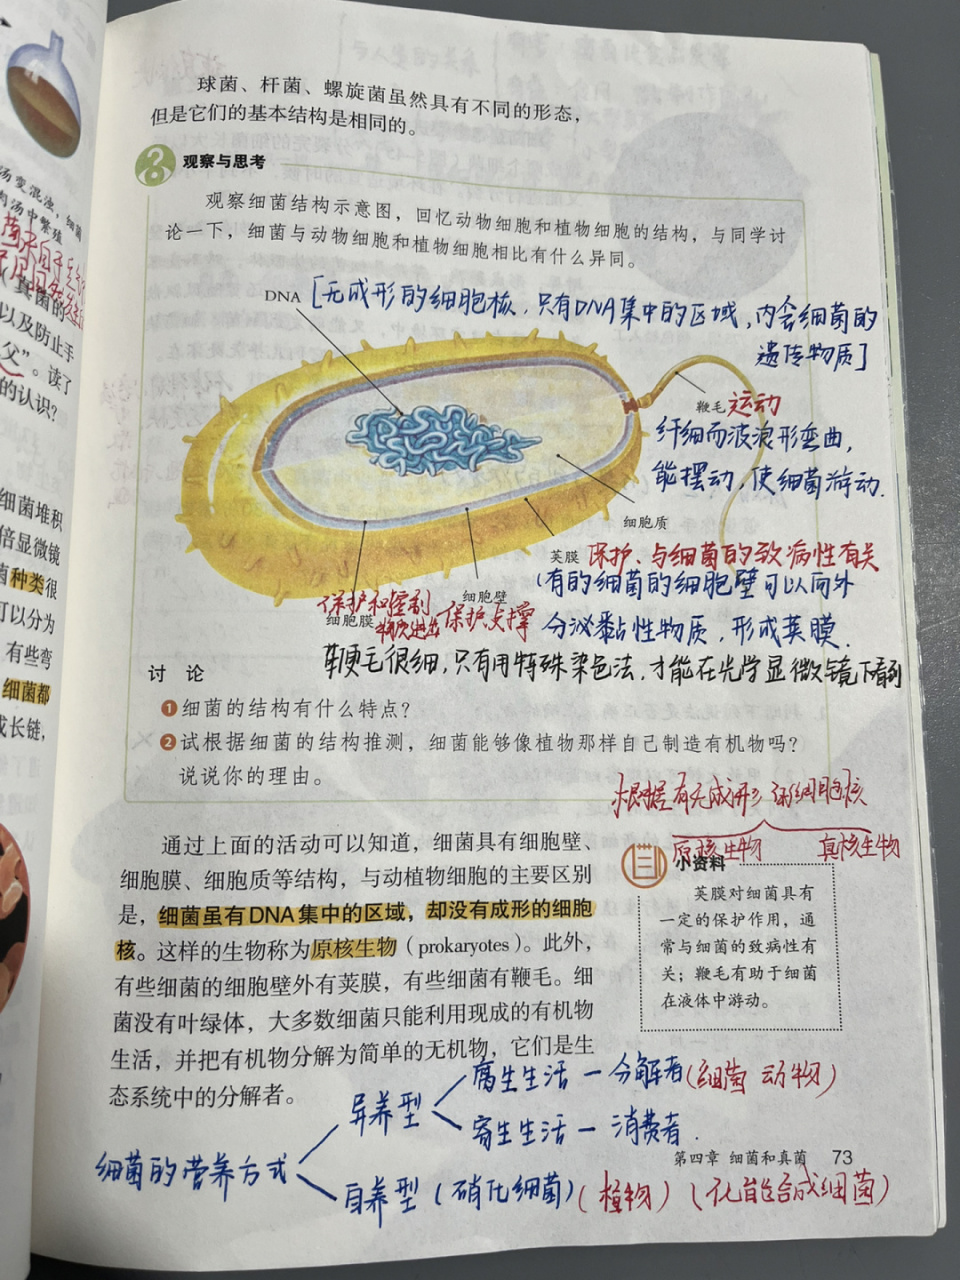 球菌、杆菌、螺旋菌虽然具有不同的形态，
但是它们的基本结构是相同的。
观察与思考
观察细菌结构示意图，回忆动物细胞和植物细胞的结构，与同学讨
论一下，细菌与动物细胞和植物细胞相比有什么异同。
DNA [无成形的细胞核，只有DNA集中的区域，内含细菌的
遗传物质]
鞭毛 运动
纤细而波浪形弯曲，
能摆动，使细菌游动.
细胞质
荚膜 保护、与细菌的致病性有关
(有的细菌的细胞壁可以向外
分泌黏性物质，形成荚膜.
细胞壁
保护支撑
保护和控制
物质进出
细胞膜
鞭毛很细，只有用特殊染色法，才能在光学显微镜下看到
讨 论
1 细菌的结构有什么特点？
2 试根据细菌的结构推测，细菌能够像植物那样自己制造有机物吗？
说说你的理由。
根据有无成形的细胞核
原核生物 真核生物
通过上面的活动可以知道，细菌具有细胞壁、
细胞膜、细胞质等结构，与动植物细胞的主要区别
是，细菌虽有DNA集中的区域，却没有成形的细胞
核。这样的生物称为原核生物（prokaryotes）。此外，
有些细菌的细胞壁外有荚膜，有些细菌有鞭毛。细
菌没有叶绿体，大多数细菌只能利用现成的有机物
生活，并把有机物分解为简单的无机物，它们是生
态系统中的分解者。
小资料
荚膜对细菌具有
一定的保护作用，通
常与细菌的致病性有
关；鞭毛有助于细菌
在液体中游动。
细菌的营养方式
异养型
腐生生活－分解者(细菌 动物)
寄生生活－消费者.
自养型(硝化细菌)(植物)(化能合成细菌)
第四章 细菌和真菌 73
汤变混浊，细菌
肉汤中繁殖
以及防止手
父”。读了
的认识？
细菌堆积
倍显微镜
菌种类很
可以分为
有些弯
细菌都
成长链，